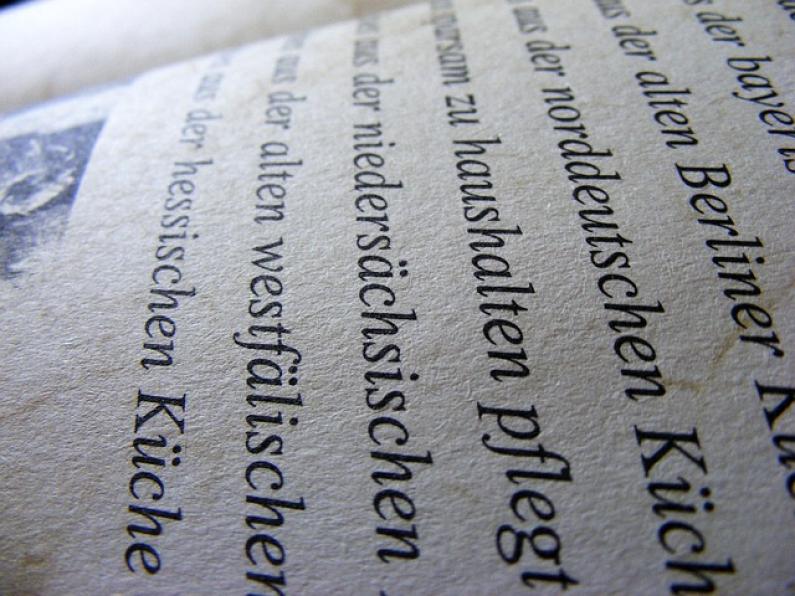 der bayeris
der alten Berliner Küc
aus der norddeutschen Küch
sparsam zu haushalten pflegt
aus der niedersächsischen
aus der alten westfälischen
aus der hessischen Küche